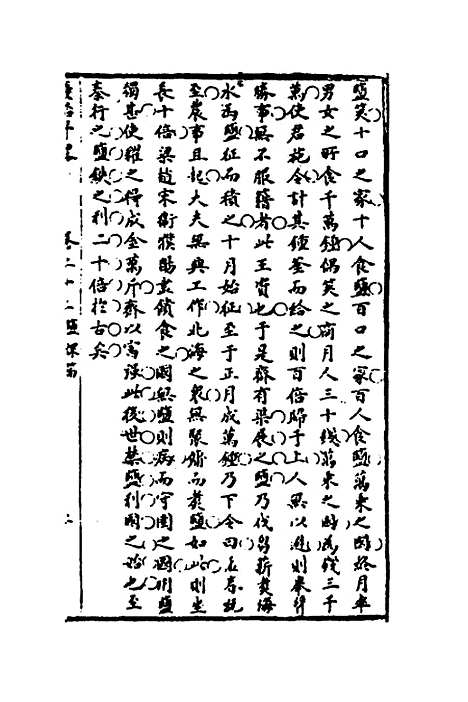 鹽筴十口之家十人食鹽百口之家百人食鹽萬乘之國終月率
男女之所食千萬鍾偶筴之商月人三十錢萬乘之國為錢三千
萬使君施令計其鍾釜而給之則百倍歸于上人無以避則奉行
勝事無不服籍者此王資也于是齊有渠展之鹽乃伐菹薪煑海
水為鹽征而積之十月始征至于正月成萬鍾乃下令曰在春既
至農事且起大夫無興工作北海之衆無聚傭而煑鹽如此則坐
長十倍梁趙宋衛濮陽盡饋食之國無鹽則病而守圉之國用鹽
獨甚使糴之得成金萬斤齊以富强此後世禁鹽利國之始也至
秦行之鹽鐵之利二十倍於古矣
卷二十二鹽課篇